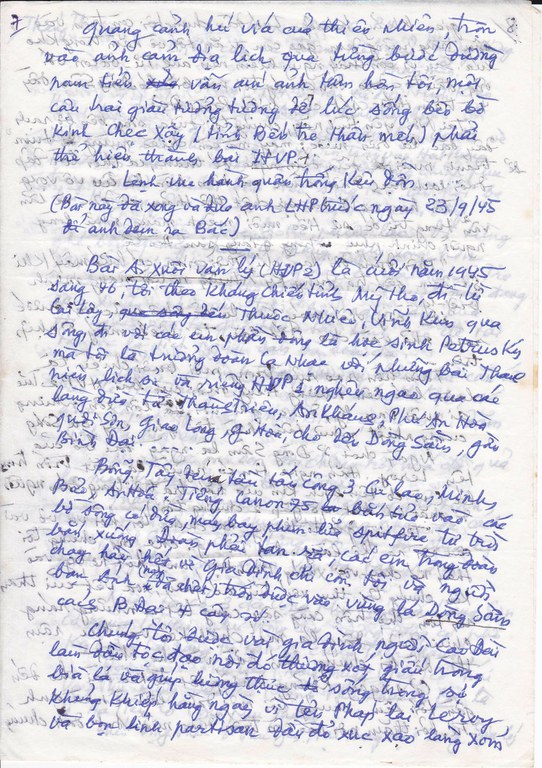 7
Quang cảnh hú vía của thiên nhiên, trộn
vào ảnh cảm địa lịch qua từng bước đường
nam tiến vẫn ám ảnh tâm hồn tôi, một
cậu trai giàu tưởng tượng để lúc sống bên bờ
kinh Chẹc Xậy (tỉnh Bến tre thân mến) phải
thể hiện thành bài HVP1
hành quân trong
(Bài này đã xong và đưa anh LHP trước ngày 23/9/45
để anh đem ra Bắc)
Bài A Xuôi vạn lý (HVP2) là cuối năm 1945
sang 46 tôi theo Kháng chiến tỉnh Mỹ Tho, đi từ
Cai Lậy, Thuộc Nhiêu, Vĩnh Kim qua
sông, đi với các em phần đông là học sinh Petrus Ký
mà tôi là trưởng đoàn ca nhạc với những bài Thanh
niên lịch sử và riêng HVP1 nghêu ngao qua các
làng điền Tân Thạch, An Khánh, Phú An Hòa
Quới Sơn, Giao Long, G Hòa, cho đến Dòng Sầm, gần
Bình Đại.
Bỗng, Tây đem tàu tấn công 3 Cù lao, Minh,
Bảo, An Hóa. Tiếng Canon 75 bắn vào các
bờ sông có dân, máy bay phóng pháo spitfire từ trời
bắn xuống. Đoàn phải tan rã, các em trong đoàn
chạy hầu hết về gia đình chỉ còn tôi và người
bạn Anh (mới chết) trốn được vào vùng là Dòng Sầm
cách B. Đại 4 cây số.
Chúng tôi được vài gia đình người Cao Đài
làm đầu tộc đạo nơi đó thương xót giấu trong
bìa lá và giúp lương thực để sống trong sự
khủng khiếp hàng ngày vì tên Pháp lai Leroy
và bọn lính partisan đầu đỏ xục xạo làng xóm